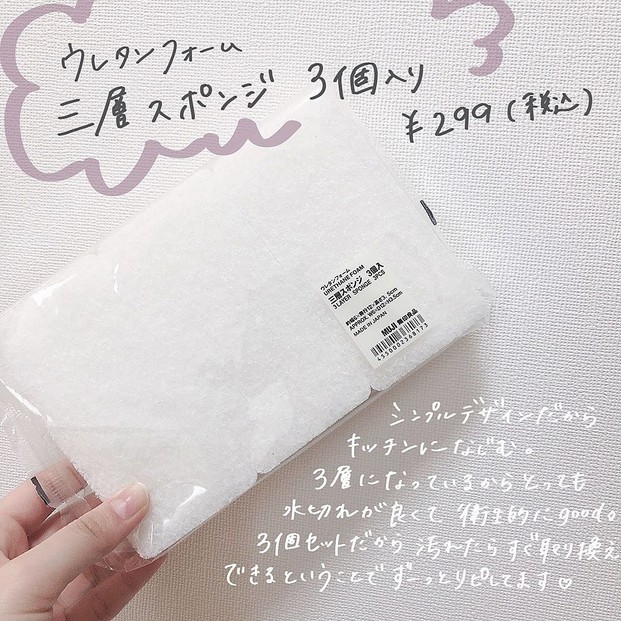 ウレタンフォーム
三層スポンジ 3個入り
¥299(税込)
ウレタンフォーム
URETHANE FOAM
三層スポンジ 3個入
3 LAYER SPONGE 3PCS
約幅6×奥行12×高さ3.5cm
APPROX. W6×D12×H3.5cm
MADE IN JAPAN
MUJI 無印良品
4550002368173
シンプルデザインだから
キッチンになじむ。
3層になっているからとっても
水切れが良くて 衛生的にgood。
3個セットだから 汚れたらすぐ取り換え
できるということで ずーっとリピしてます♡